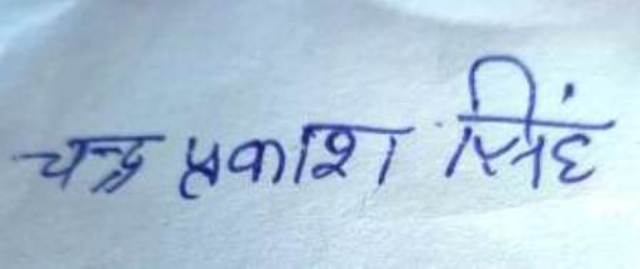 चन्द्र प्रकाश सिंह